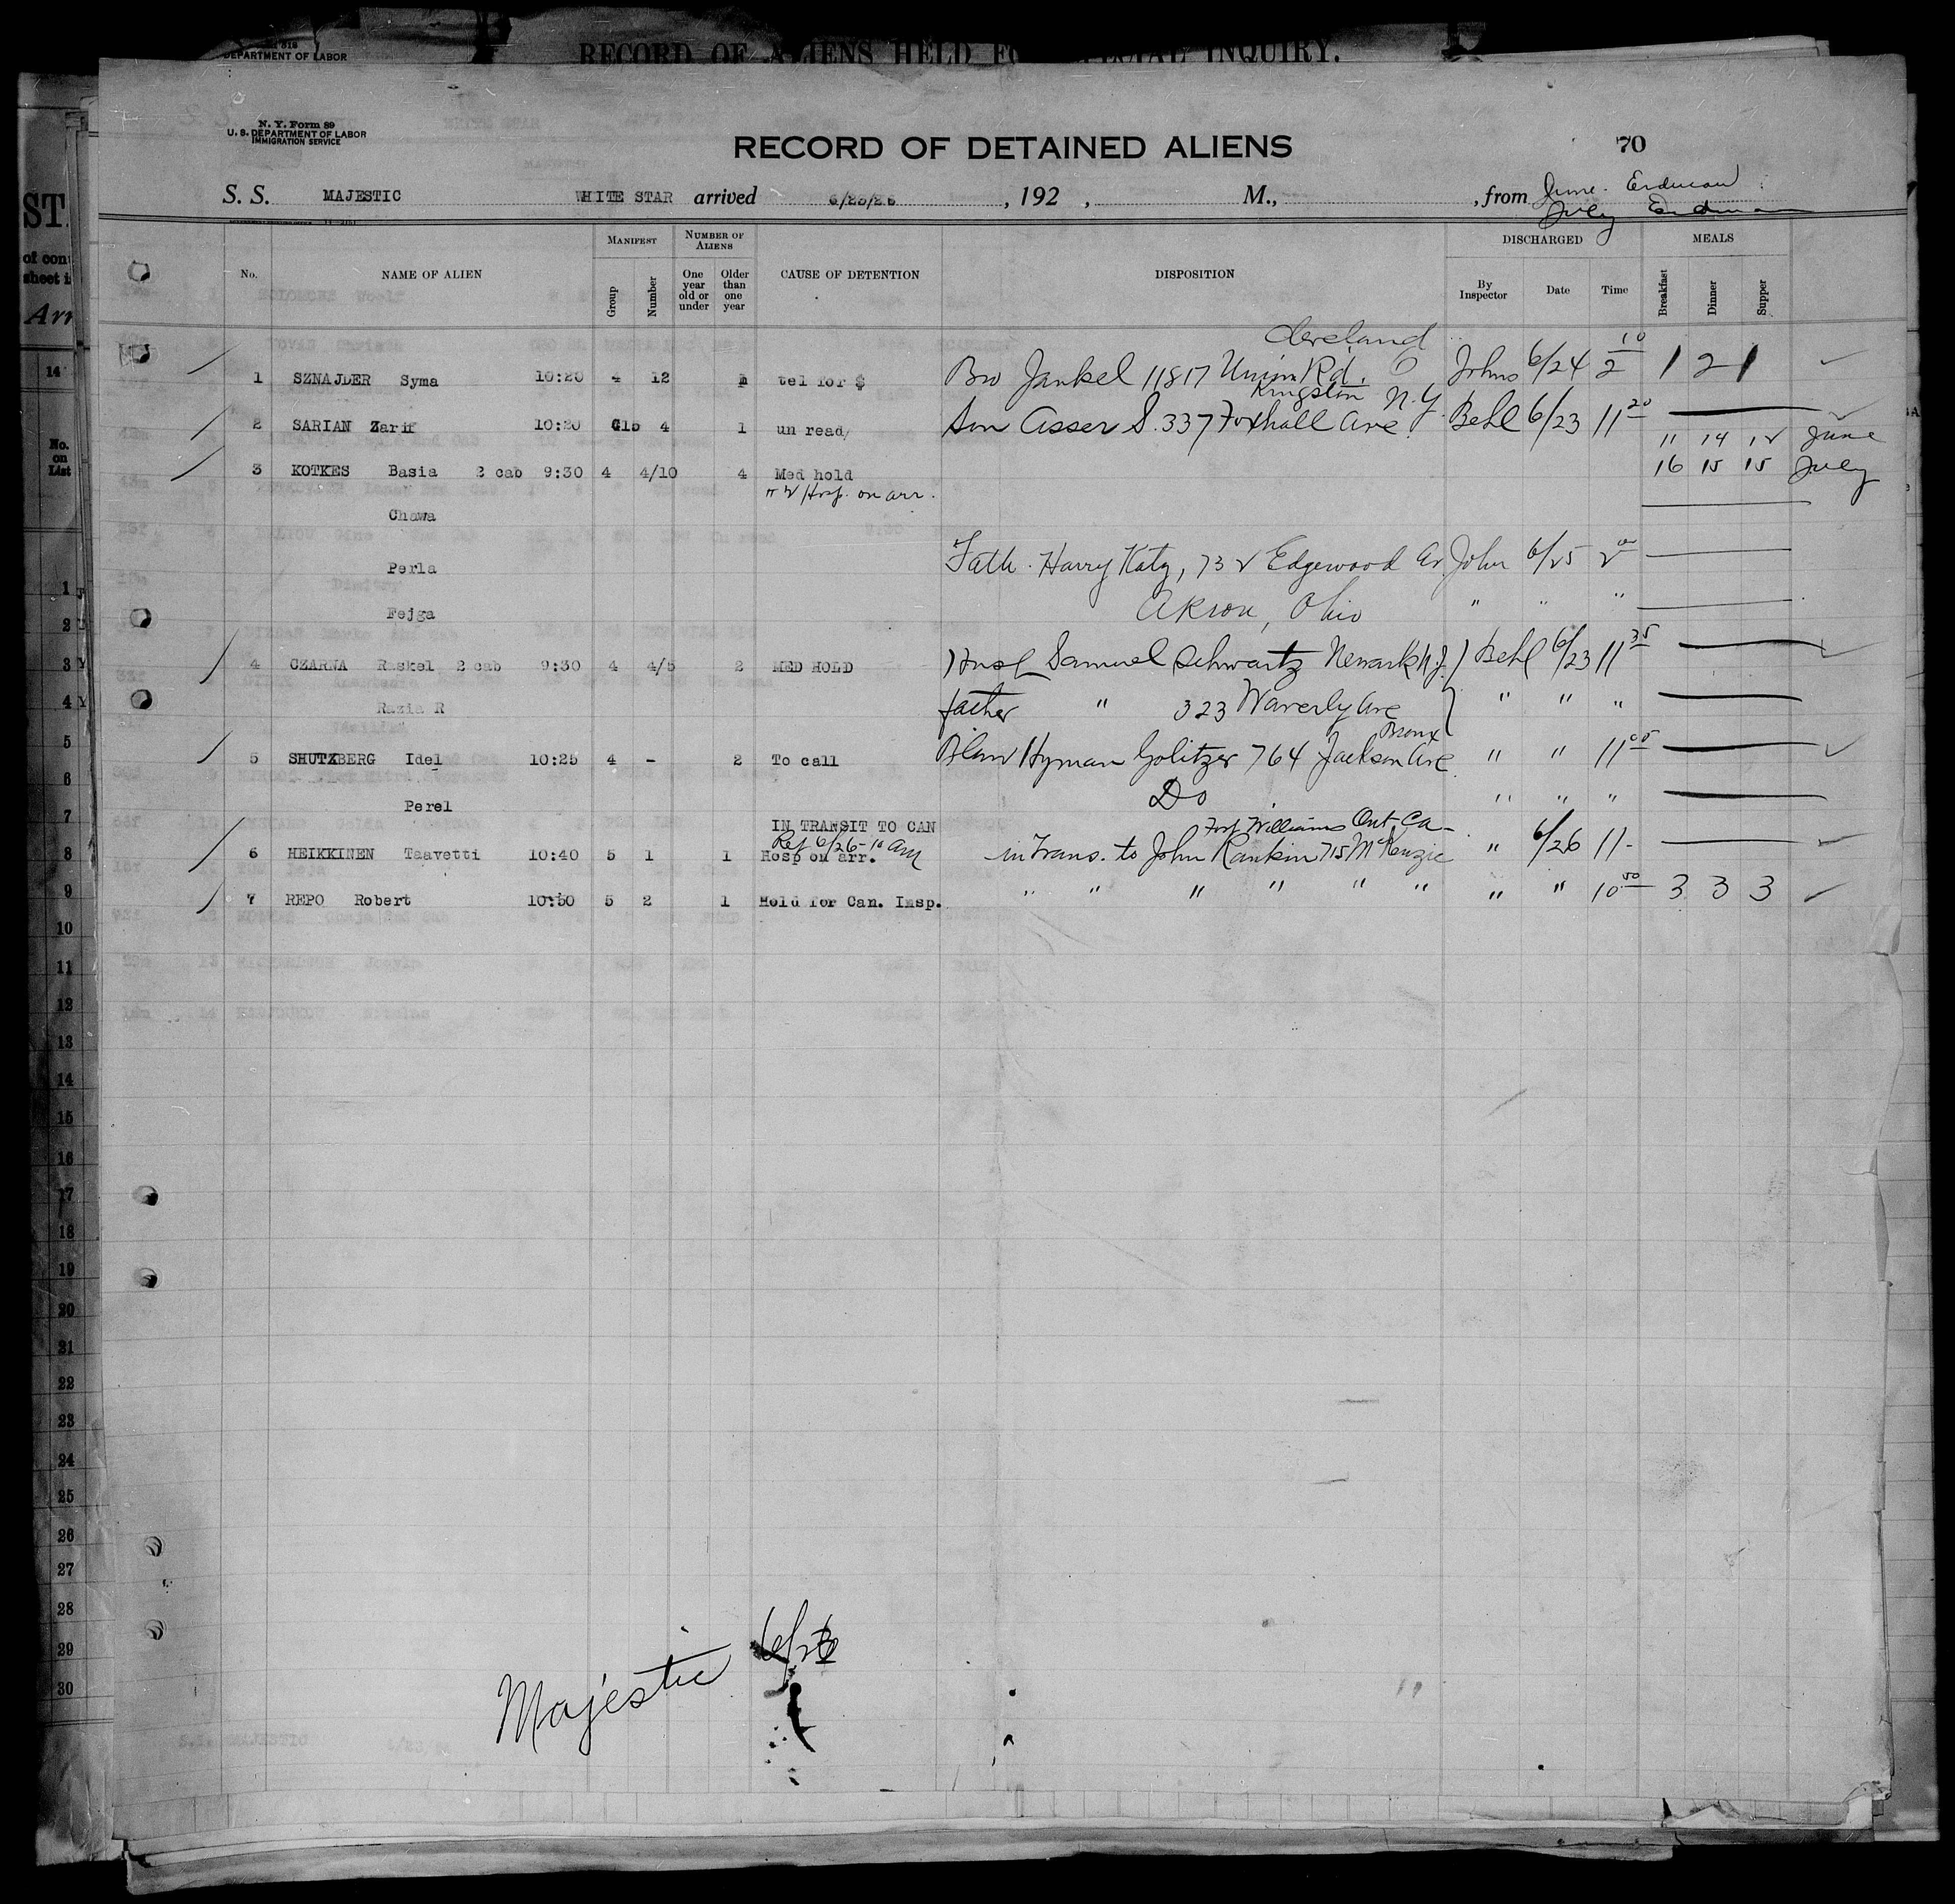 DEPARTMENT OF LABOR
RECORD OF ALIENS HELD FOR SPECIAL INQUIRY.
N. Y. Form 89
U. S. DEPARTMENT OF LABOR
IMMIGRATION SERVICE
RECORD OF DETAINED ALIENS
70
S. S. MAJESTIC WHITE STAR arrived 6/23/26, 192 , M., , from June. Erdman
July Erdman
No. NAME OF ALIEN MANIFEST Group Number NUMBER OF ALIENS One year old or under Older than one year CAUSE OF DETENTION DISPOSITION DISCHARGED By Inspector Date Time MEALS Breakfast Dinner Supper
Cleveland
1 SZNAJDER Syma 10:20 4 12 1 tel for $ Bro Jankel 11817 Union Rd. O Johns 6/24 2 10 1 2 1
Kingston N.Y.
2 SARIAN Zarif 10:20 G15 4 1 un read/ Son Asser S. 337 Foxhall Ave. Behl 6/23 11 20
11 14 12 June
3 KOTKES Basia 2 cab 9:30 4 4/10 4 Med hold 16 15 15 July
Hosp. on arr.
Chawa
Perla Fath. Harry Katz, 732 Edgewood Av. John 6/25 2 00
Fejga Akron, Ohio " " "
4 CZARNA Raskel 2 cab 9:30 4 4/5 2 MED HOLD Husb Samuel Schwartz Newark N.J. Behl 6/23 11 35
Razia R father " 323 Waverly Ave " " "
Bronx
5 SHUTZBERG Idel 10:25 4 - 2 To call Blaw Hyman Golitzer 764 Jackson Ave " " 11 05
Perel Do " " "
IN TRANSIT TO CAN Fort Williams Ont. Ca-
Ref 6/26-10 am
6 HEIKKINEN Taavetti 10:40 5 1 1 Hosp on arr. in Trans. to John Rankin 715 McKenzie " 6/26 11-
7 REPO Robert 10:50 5 2 1 Held for Can. Insp. " " " " " " " " 10 50 3 3 3
Majestic 6/23
ST.
sheet i
Arr
14
No.
on
List
1
2
3
4
5
6
7
8
9
10
11
12
13
14
15
16
17
18
19
20
21
22
23
24
25
26
27
28
29
30